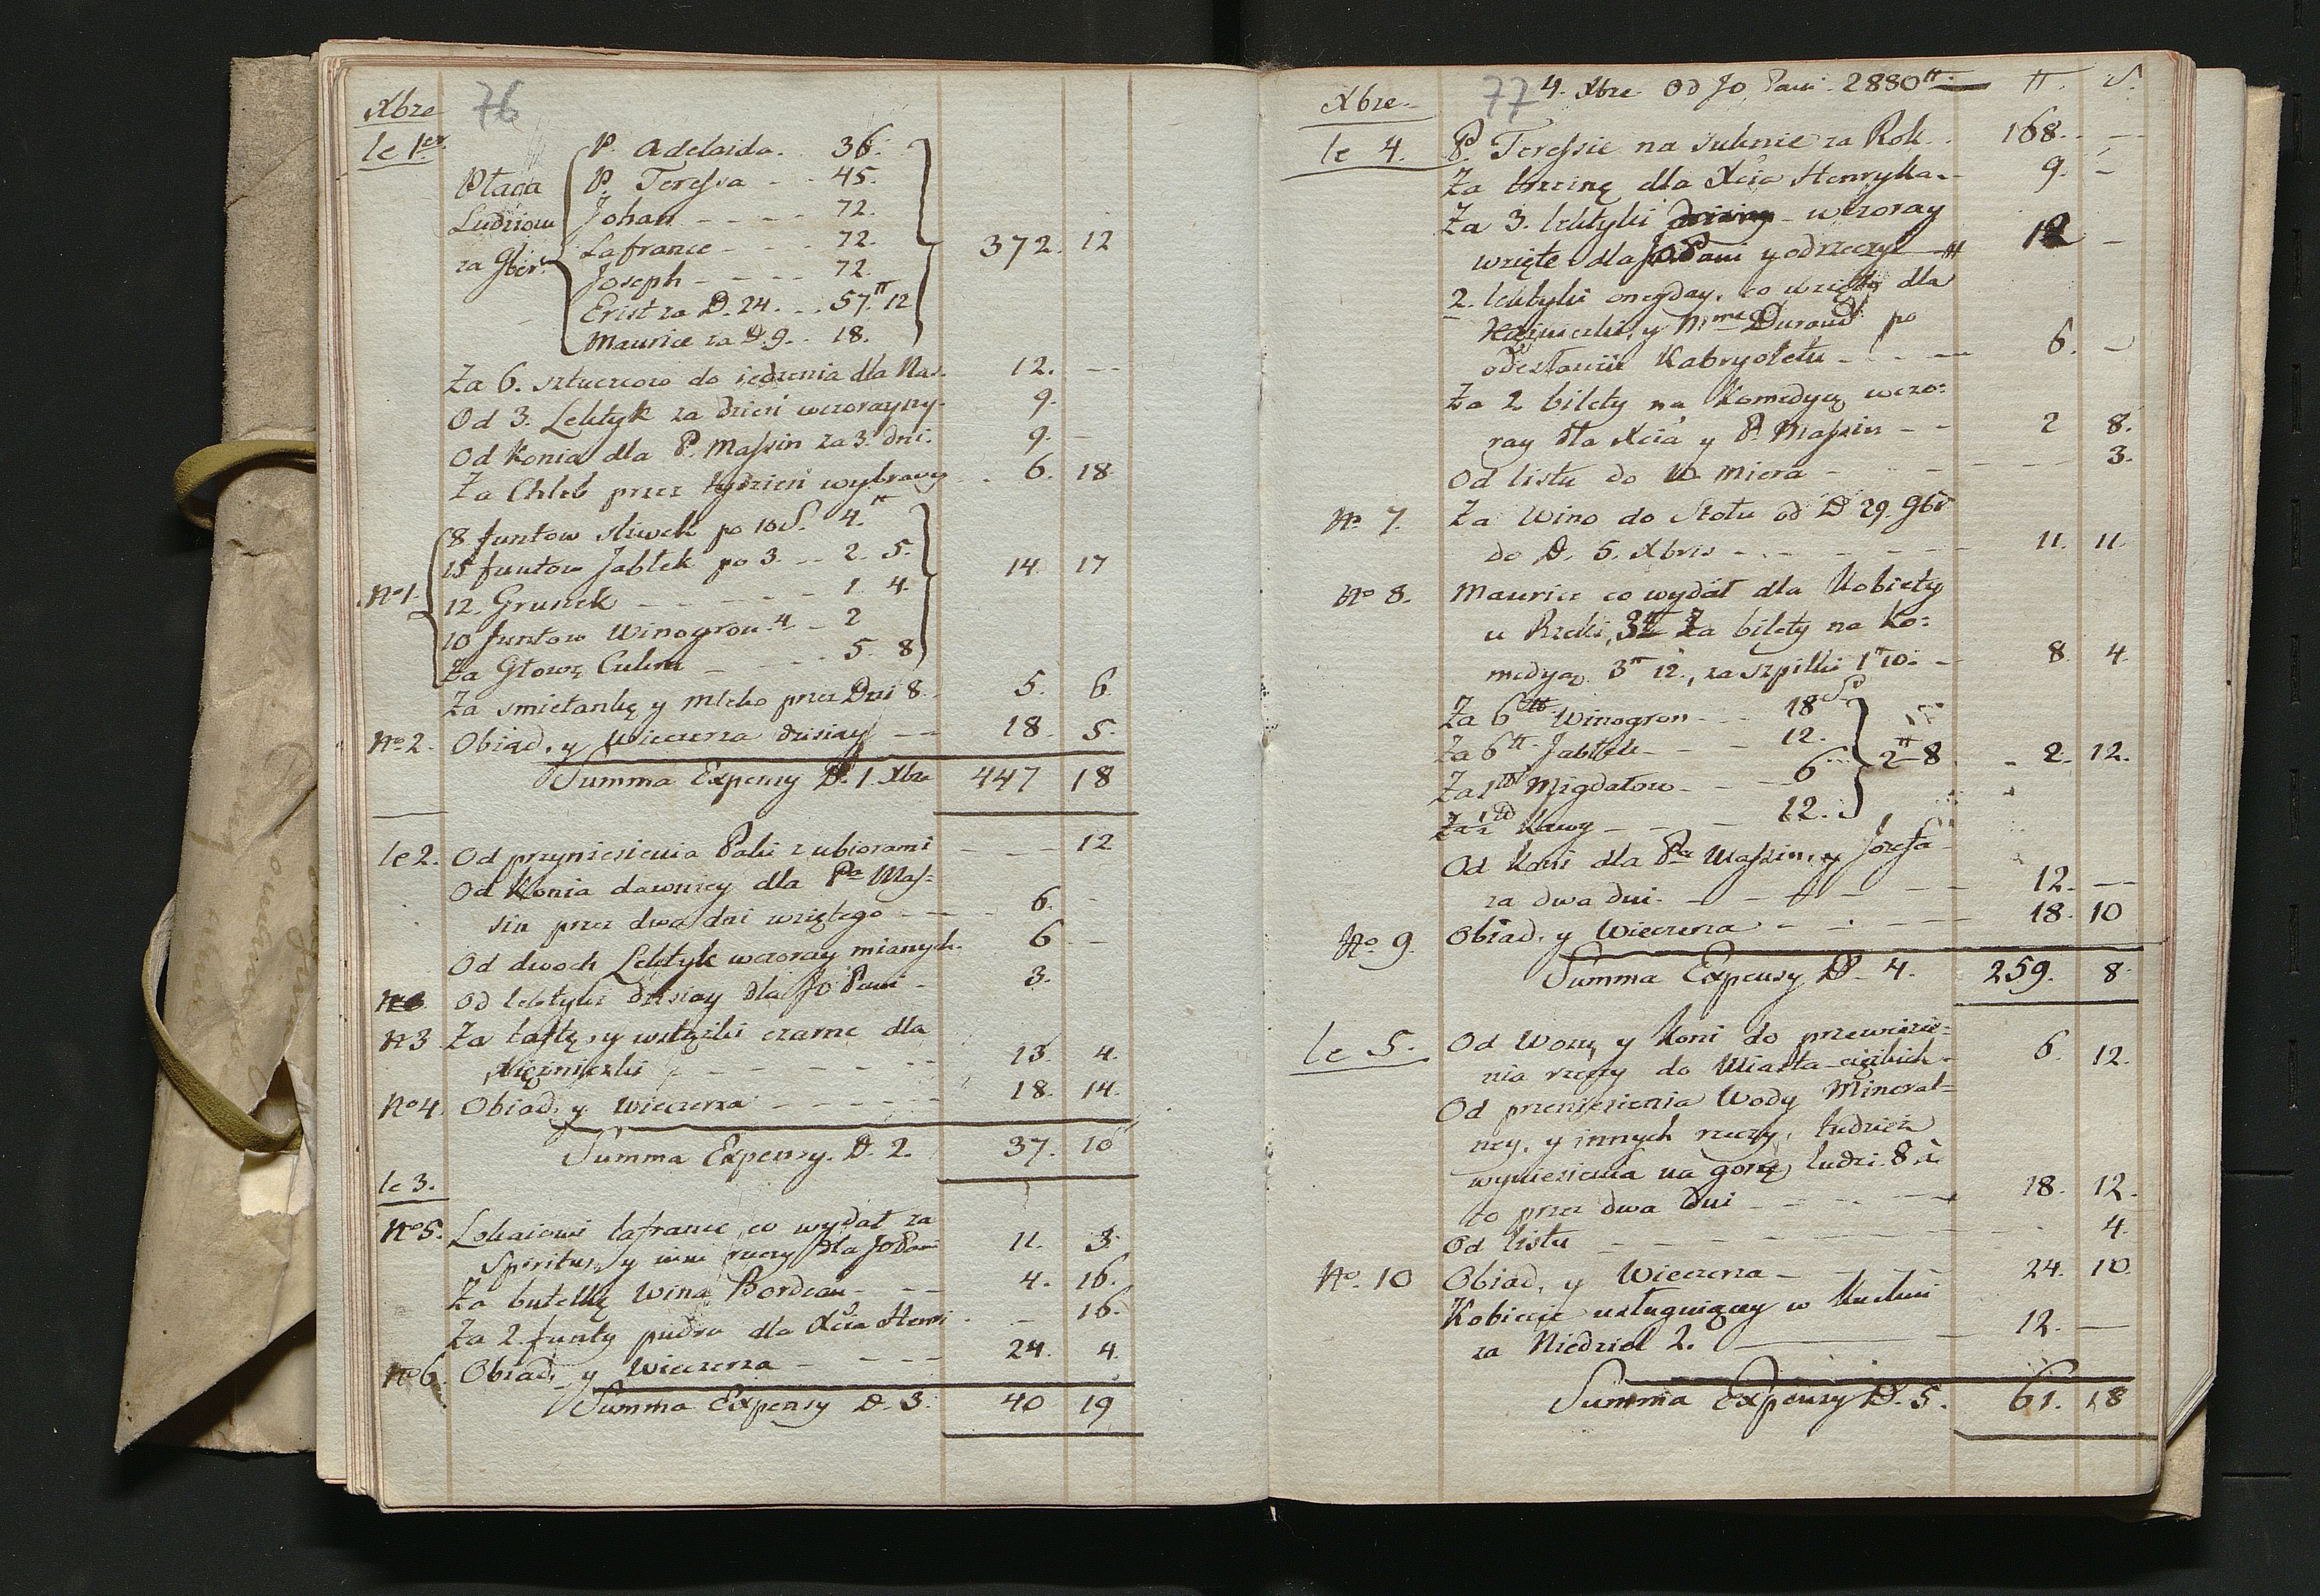 Xbre 76
le 1er P. Adelaida. 36.
Płaca P. Teressa - - 45.
Ludziom Johan - - - - 72.
Lafrance - - - 72. 372. 12
za 9br. Joseph - - - 72.
Erist za D. 24. - - 57.tt 12
Maurice za D. 9. - 18.
Za 6. sztuccow do iedzenia dla Nas. 12. --
Od 3. Lektyk za dzień wczorayszy. 9.
Od Konia dla P. Massin za 3. dni. 9. -
Za Chleb przez tydzień wybrany . 6. 18
8 funtow sliwek po 10 S. 4.tt
15 funtow Jabłek po 3. -- 2. 5.
No 1. 12. Gruszek - - - - - 1. 4. 14. 17
10 funtow Winogron 4 - 2
Za Głowę Cukru - - - - 5. 8
Za smietankę y mleko przez Dni 8. 5. 6.
No 2. Obiad, y Wieczerza dzisiay - - 18. 5.
Summa Expensy D. 1. Xbre 447 18
le 2. Od przyniesienia Paki z ubiorami - - - 12
Od Konia dawniey dla Pa Mas=
sin przez dwa dni wziętego - - - 6. -
Od dwoch Lektyk wczoray mianych. 6 -
Od lektyki dzisiay dla JO Pani - 3.
N 3 Za taftę, y wstążki czarne dla
Xiężniczki - - - - - - 13. 4.
No 4. Obiad, y Wieczerza - - - - - 18. 14.
Summa Expensy. D. 2. 37. 10
le 3.
No 5. Lokaiowi Lafrance, co wydał za
Spiritus, y inne rzeczy dla JO Pani 11. 3.
Za butelkę Wina Bordeau - - - 4. 16.
Za 2. funty pudru dla Xcia Henri . - 16.
No 6. Obiad, y Wieczerza - - - - 24. 4.
Summa Expensy D. 3. 40 19
Xbre. 77 4. Xbre Od JO Pani 2880tt. tt. S.
le 4. P. Teressie na suknie za Rok . . 168. --
Za trzcinę dla Xcia Henryka. - 9. -
Za 3. lektyki - wczoray
wzięte dla JO Pani y odrzeczył 12 -
2. lektyki onegday, co wzięto dla
Xiężniczki, y Mme Durand po
odesłaniu Kabryoletu - - - - 6. -
Za 2 bilety na Komedyą wczo=
ray dla Xcia y P. Massin - - 2 8.
Od listu do W. Miera - - - - - 3.
No 7. Za Wino do Stołu od D 29. 9br
do D. 5. Xbris - - - - - - 11. 11.
No 8. Maurice co wydał dla Kobiety
u Rzeki, 3tt Za bilety na Ko=
medyą 3tt 12., za szpilki 1tt 10. - 8. 4.
Za 6tt Winogron - - - 18 S
Za 6tt Jabłek - - - 12. 2tt 8 - 2. 12.
Za 1tt Migdałow - - - 6
Kawy - - - 12.
Od Koni dla Pa Massin, y Jozefa
za dwa dni. - - - - - 12. --
No. 9. Obiad, y Wieczerza - - - - 18. 10
Summa Expensy D. 4. 259. 8.
le 5. Od Wozu y Koni do przewiezie=
nia rzeczy do Miasta ciężkich. 6. 12.
Od przeniesienia Wody Mineral=
ney, y innych rzeczy, tudzież
wyniesienia na gorę, ludzi 8. i
to przez dwa dni - - - - 18. 12.
Od listu - - - - - - - - 4.
No. 10 Obiad, y Wieczerza - - - - 24. 10.
Kobiecie usługuiącey w Kuchni
za Niedziel 2. - 12. --
Summa Expensy D. 5. 61. 18